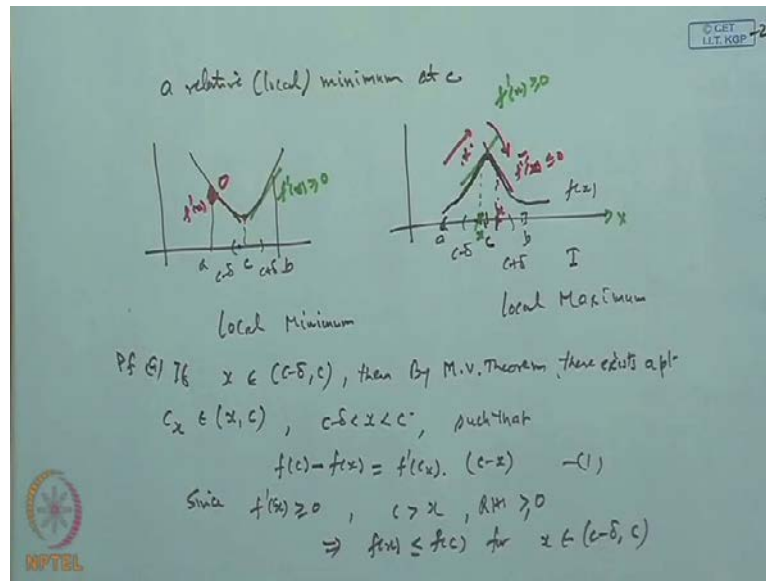 © CET
I.I.T. KGP
a relative (local) minimum at c
f'(x) ≥ 0
f'(x) ≤ 0
f'(x)
0
f'(x) ≥ 0
f(x)
x
a c-δ c c+δ b
a c-δ x c x c+δ b
I
Local Minimum
Local Maximum
Pf (a) If x ∈ (c-δ, c), then By M.V. Theorem, there exists a pt.
c_x ∈ (x, c), c-δ < x < c, such that
f(c) - f(x) = f'(c_x). (c-x) —(1)
Since f'(x) ≥ 0, c > x, RHS ≥ 0
⇒ f(x) ≤ f(c) for x ∈ (c-δ, c)
NPTEL